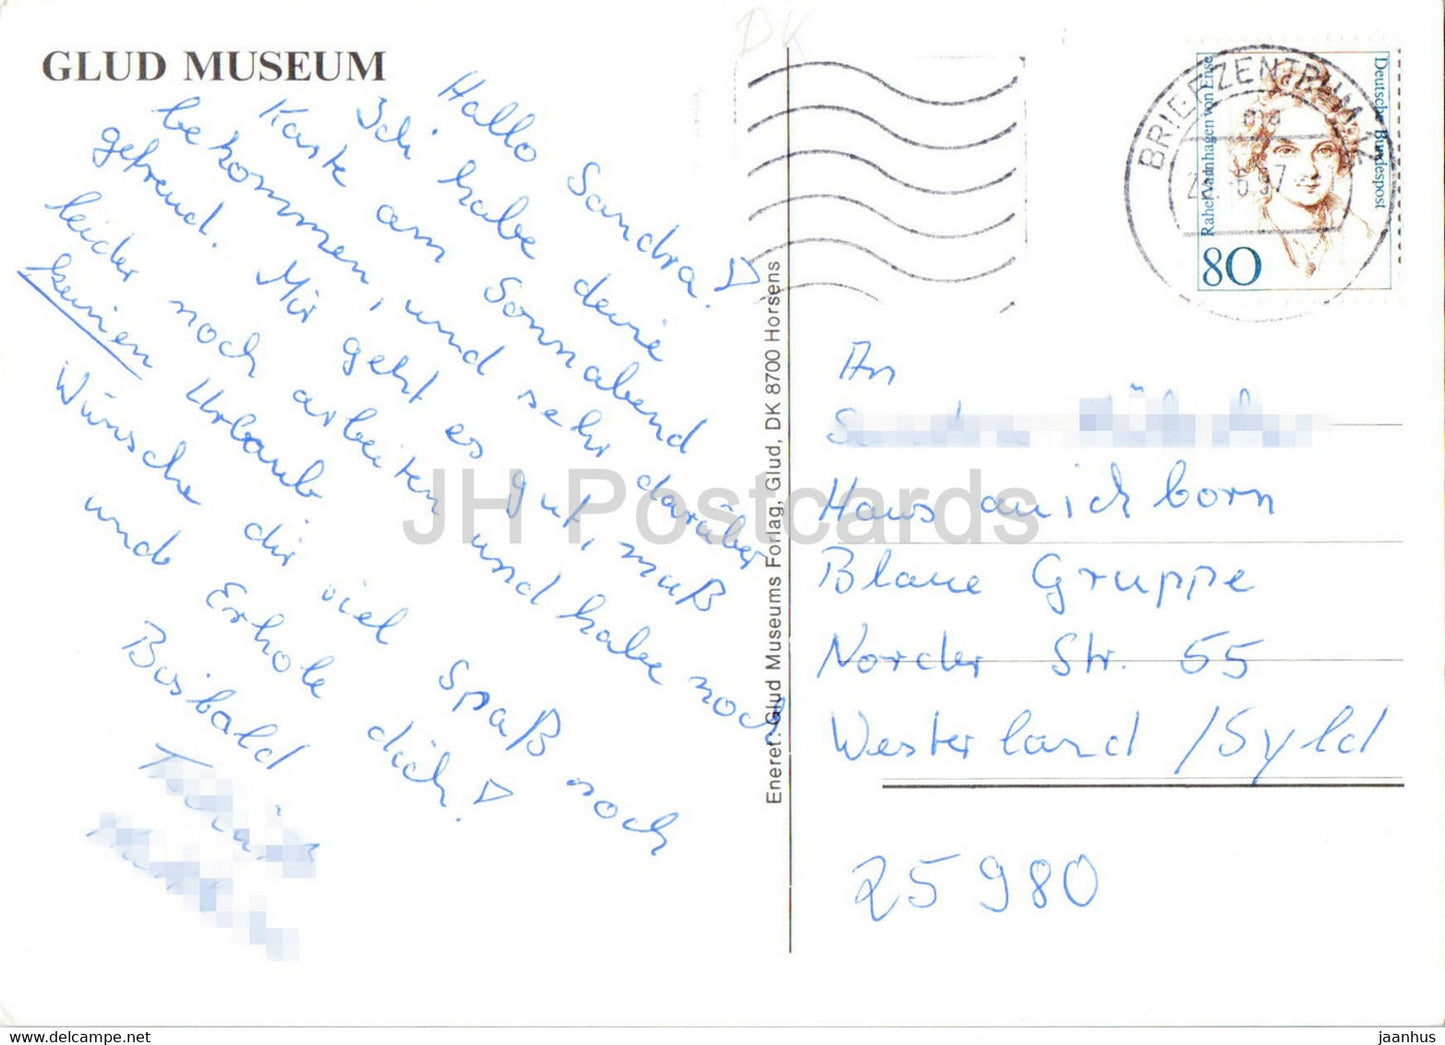 GLUD MUSEUM
Hallo Sandra!
Ich habe deine
Karte am Sonnabend
bekommen, und sehr darüber
gefreud. Mir geht es gut, muß
leider noch arbeiten und habe noch
keinen Urlaub
Wünsche dir viel Spaß noch
und Erhole dich!
Bisbald
Eneret: Glud Museums Forlag, Glud, DK 8700 Horsens
DK
BRIEFZENTRUM
Deutsche Bundespost
Rahel Varnhagen von Ense
80
An
Haus
Blaue Gruppe
Norder Str. 55
Westerland /Syld
25980
JH Postcards
hippostcard.com/store/jhpostcards
jaanhus